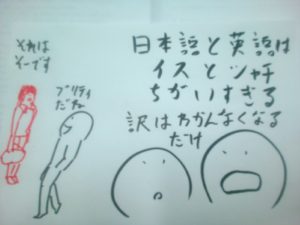 日本語と英語は
イスとシャチ
ちがいすぎる
訳はわかんなくなる
だけ
それは
そーです
プリティ
だね